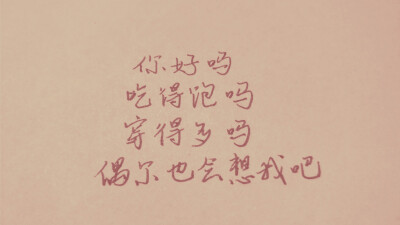 你好吗
吃得饱吗
穿得多吗
偶尔也会想我吧